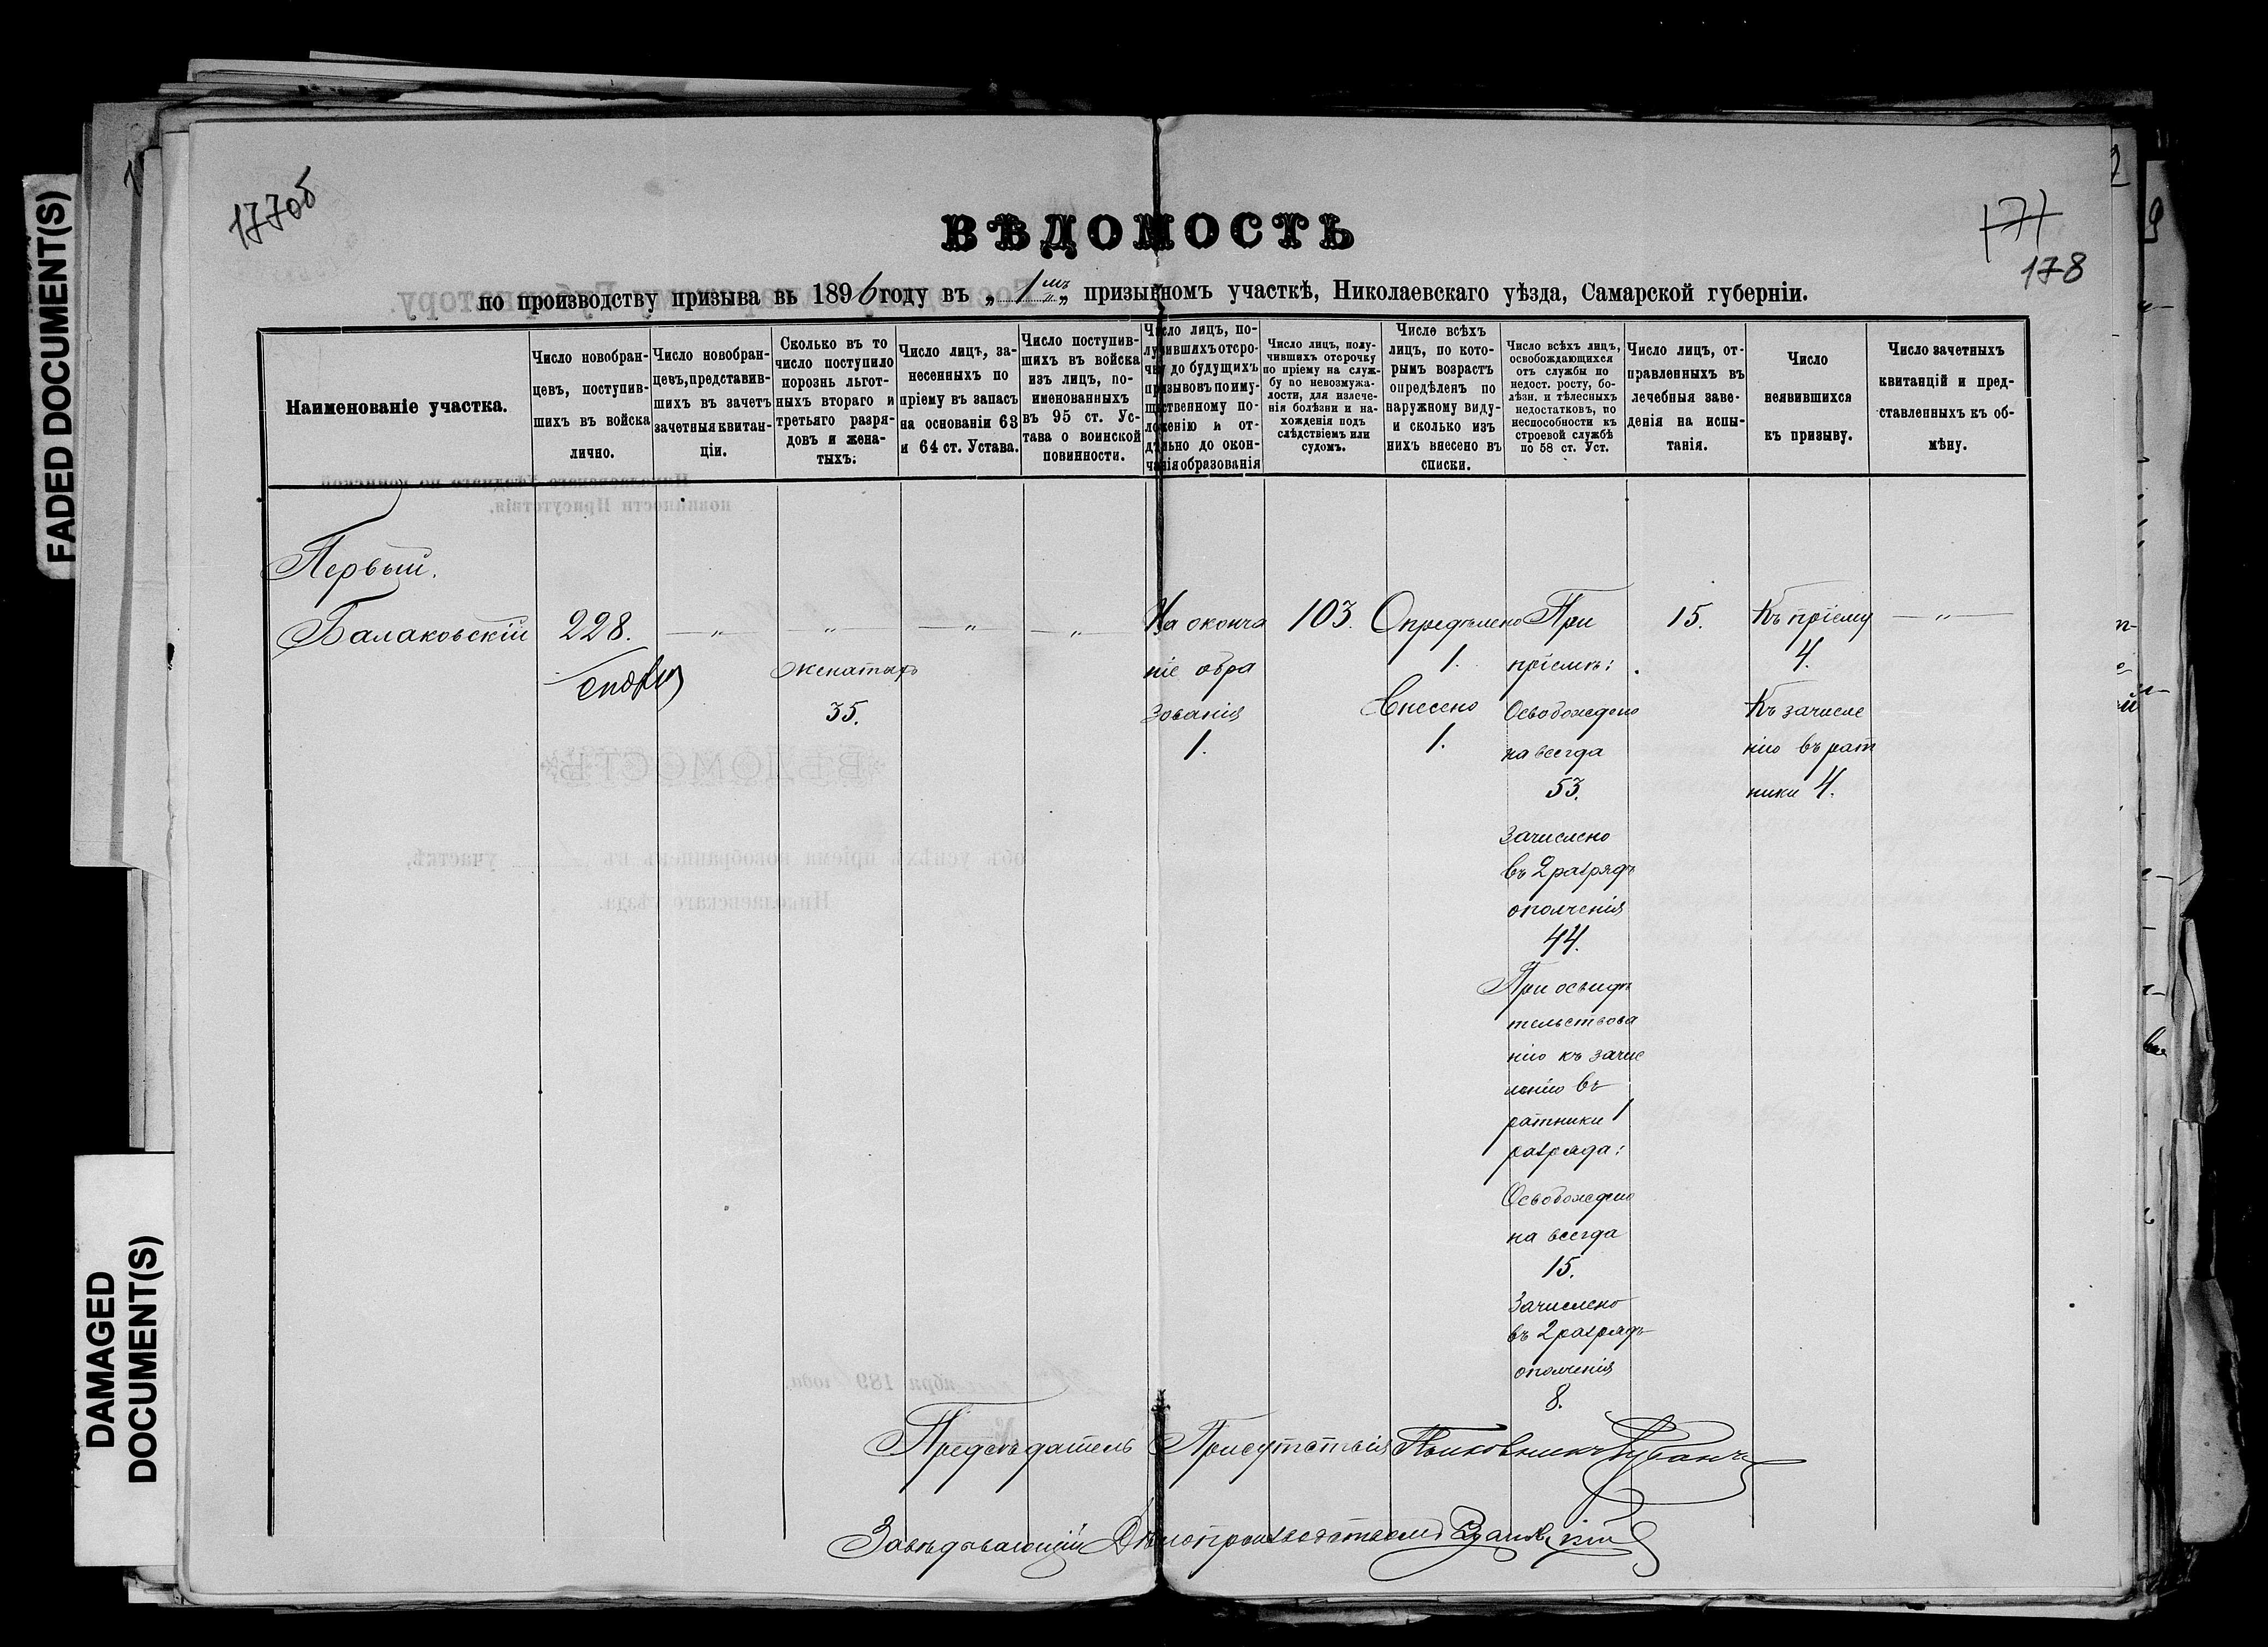 FADED DOCUMENT(S)
DAMAGED
DOCUMENT(S)
177об
177
178
ВѢДОМОСТЬ
по производству призыва въ 1896 году въ „ 1мъ „ призывномъ участкѣ, Николаевскаго уѣзда, Самарской губерніи.
Наименованіе участка.
Число новобран-
цевъ, поступив-
шихъ въ войска
лично.
Число новобран-
цевъ, представив-
шихъ въ зачетъ
зачетныя квитан-
ціи.
Сколько въ то
число поступило
порознь льгот-
ныхъ втораго и
третьяго разря-
довъ и жена-
тыхъ.
Число лицъ, за-
несенныхъ по
пріему въ запасъ
на основаніи 63
и 64 ст. Устава.
Число поступив-
шихъ въ войска
изъ лицъ, по-
именованныхъ
въ 95 ст. Ус-
тава о воинской
повинности.
Число лицъ, по-
лучившихъ отсро-
чку до будущихъ
призывовъ по иму-
щественному по-
ложенію и от-
дѣльно до окон-
чанія образованія
Число лицъ, полу-
чившихъ отсрочку
по пріему на служ-
бу по невозмужа-
лости, для излече-
нія болѣзни и на-
хожденія подъ
слѣдствіемъ или
судомъ.
Число всѣхъ
лицъ, по кото-
рымъ возрастъ
опредѣленъ по
наружному виду-
и сколько изъ
нихъ внесено въ
списки.
Число всѣхъ лицъ,
освобождающихся
отъ службы по
недост. росту, бо-
лѣзн. и тѣлесныхъ
недостатковъ, по
неспособности къ
строевой службѣ
по 58 ст. Уст.
Число лицъ, от-
правленныхъ въ
лечебныя заве-
денія на испы-
танія.
Число
неявившихся
къ призыву.
Число зачетныхъ
квитанцій и пред-
ставленныхъ къ об-
мѣну.
Первый.
Балаковскій
228.
— „ —
— „ —
женатыхъ
35.
— „ —
— „ —
На оконча
ніе обра
зованія
1.
103.
Опредѣлено
1.
Внесено
1.
При
пріемѣ:
Освобождено
на всегда
53.
Зачислено
въ 2 разрядъ
ополченія
44.
При освидѣ
тельствова
нію къ зачис
ленію въ
ратники 1
разряда:
Освобождено
на всегда
15.
Зачислено
въ 2 разрядъ
ополченія
8.
15.
Къ пріему
4.
Къ зачисле
нію въ рат
ники 4.
— „ —
Предсѣдатель Присутствія Полковникъ
Завѣдывающій Дѣлопроизводствомъ